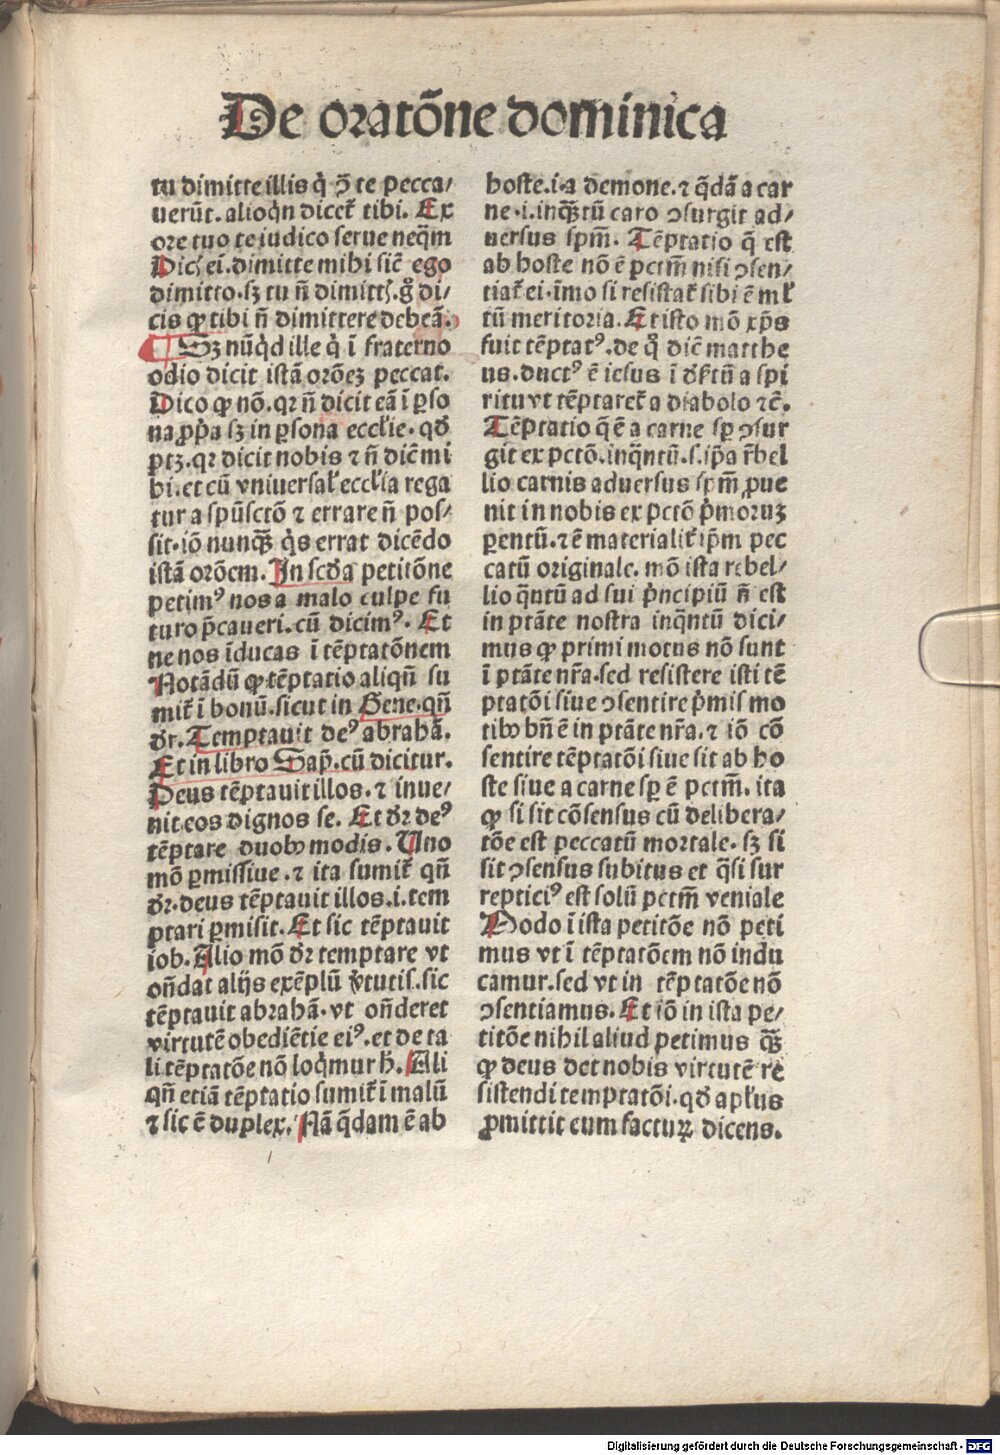 De oratōne dominica
tu dimitte illis q̇ ꝯ̄ te pecca/
uerūt. alioqn̄ dicet᷑ tibi. Ex
ore tuo te iudico serue neq̄m
Dic̄ ei. dimitte mihi sic̄ ego
dimitto. sꝫ tu n̄ dimittꝭ. g̊ di/
cis ꝙ tibi n̄ dimittere debeā.
¶ Sꝫ nūq̇d ille q̇ ī fraterno
odio dicit istā orōeꝫ peccat.
Dico ꝙ nō. qꝛ n̄ dicit eā ī ꝑso
na ꝓp̄a sꝫ in ꝑsona eccl̄ie. qđ
ptꝫ. qꝛ dicit nobis ⁊ n̄ dic̄ mi
hi. et cū vniuersal̄ eccl̄ia rega
tur a spūsctō ⁊ errare n̄ pos/
sit. iō nunq̄ꝫ q̇s errat dicēdo
istā orōem. In scđa petitōne
petimꝰ nos a malo culpe fu
turo p̄caueri. cū dicimꝰ. Et
ne nos īducas ī tēptatōnem
Notādū ꝙ tēptatio aliqn̄ su
mit᷑ ī bonū. sicut in Gene. qn̄
đr. Temptauit deꝰ abrahā.
Et in libro Sap̄. cū dicitur.
Deus tēptauit illos. ⁊ inue/
nit eos dignos se. Et đr deꝰ
tēptare duobꝰ modis. Uno
mō ꝑmissiue. ⁊ ita sumit᷑ qn̄
đr. deus tēptauit illos. i. tem
ptari ꝑmisit. Et sic tēptauit
iob. Alio mō đr temptare vt
on̄dat alijs exēplū v̄tutis. sic
tēptauit abrahā. vt on̄deret
virtutē obediētie eiꝰ. et de ta
li tēptatōe nō loq̇mur h̄. Ali
qn̄ etiā tēptatio sumit᷑ ī malū
⁊ sic ē duplex. Nā q̄dam ē ab
hoste. i. a demone. ⁊ q̄dā a car
ne. i. inq̄ꝫtū caro ꝯsurgit ad/
uersus spm̄. Tēptatio q̄ est
ab hoste nō ē pctm̄ nisi ꝯsen/
tiat᷑ ei. īmo si resistat᷑ sibi ē ml̄
tū meritoria. Et isto mō xp̄s
fuit tēptatꝰ. de q̊ dic̄ matthe
us. ductꝰ ē iesus ī đs̄tū a spi
ritu vt tēptaret᷑ a diabolo ⁊c̄.
Tēptatio q̄ ē a carne sꝑ ꝯsur
git ex pctō. inq̄ntū. s. ip̄a r̄bel
lio carnis aduersus spm̄ ꝓue
nit in nobis ex pctō ṗmoruꝫ
ꝑentū. ⁊ ē materialit᷑ ip̄m pec
catū originale. mō ista rebel/
lio q̄ntū ad sui ṗncipiū n̄ est
in ptāte nostra inq̄ntū dici/
mus ꝙ primi motus nō sunt
ī ptāte nr̄a. sed resistere isti tē
ptatōi siue ꝯsentire ṗmis mo
tibꝰ bn̄ ē in ptāte nr̄a. ⁊ iō cō
sentire tēptatōi siue sit ab ho
ste siue a carne sꝑ ē pctm̄. ita
ꝙ si sit cōsensus cū delibera/
tōe est peccatū mortale. sꝫ si
sit ꝯsensus subitus et q̄si sur
repticiꝰ est solū pctm̄ veniale
Modo ī ista petitōe nō peti
mus vt ī tēptatōem nō indu
camur. sed vt in tēptatōe nō
ꝯsentiamus. Et iō in ista pe/
titōe nihil aliud petimus q̄ꝫ
ꝙ deus det nobis virtutē re
sistendi temptatōi. qđ apl̄us
ꝓmittit eum facturꝝ dicens.
Digitalisierung gefördert durch die Deutsche Forschungsgemeinschaft - DFG